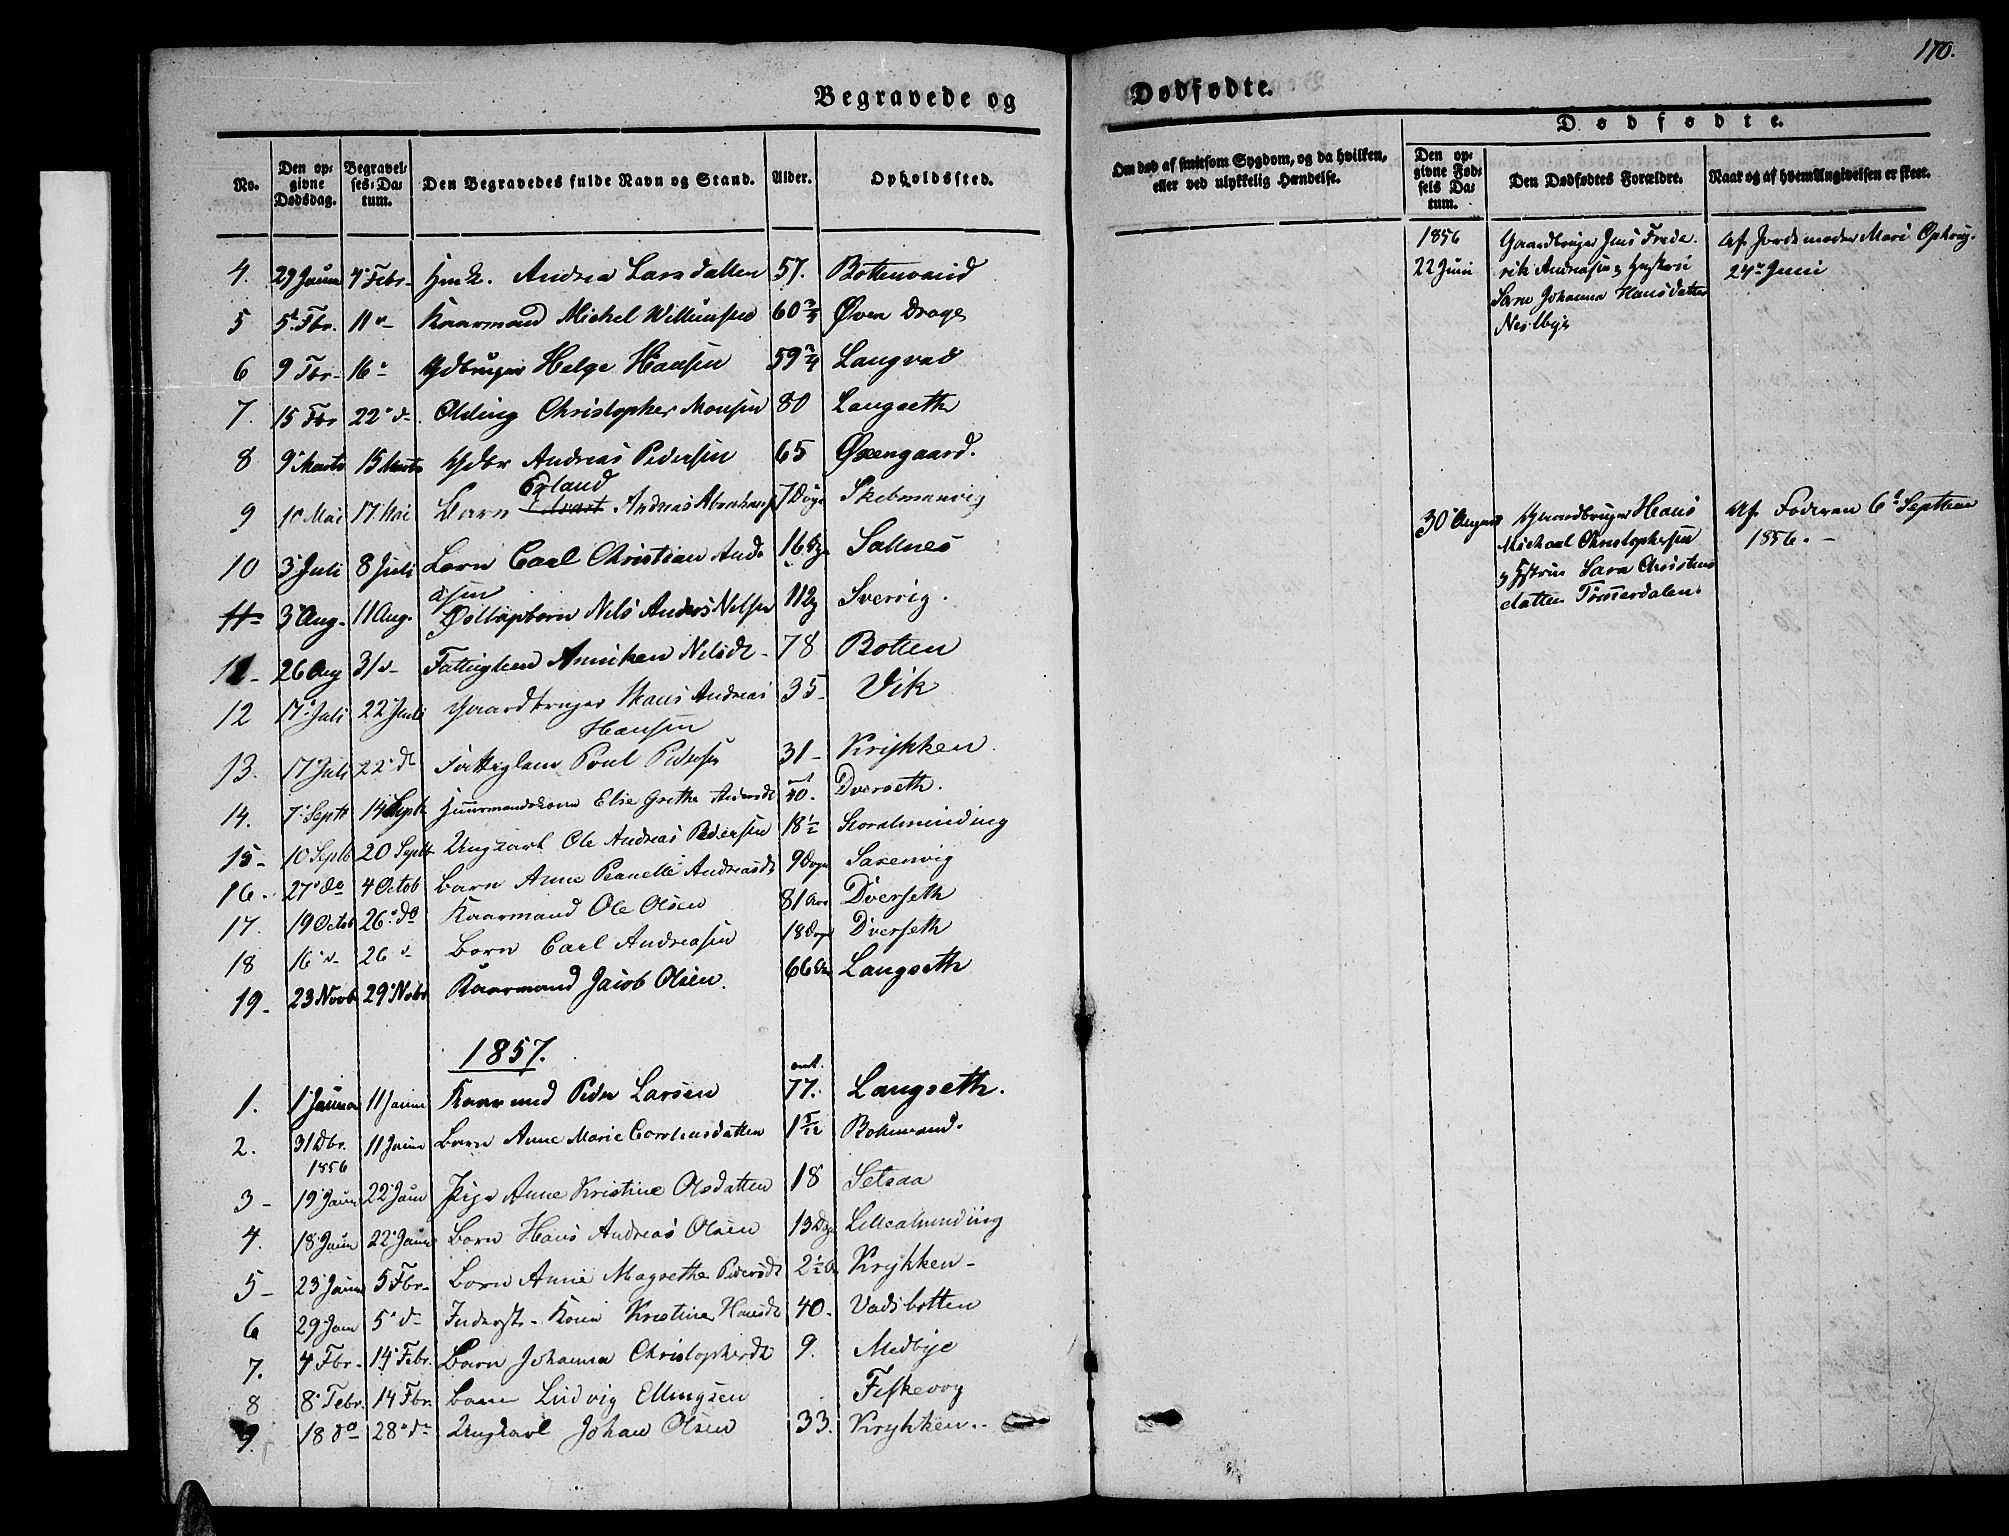 170.
Begravede og Dødfødte.
No.
Den opgivne Dødsdag.
Begravelses-Datum.
Den Begravedes fulde Navn og Stand.
Alder.
Opholdssted.
Om død af smitsom Sygdom, og da hvilken, eller ved ulykkelig Hændelse.
Dødfødte.
Den opgivne Fødsels Datum.
Den Dødfødtes Forældre.
Naar og af hvem Angivelsen er skeet.
4. 29 Janu 4 Febr. Andrea Larsdatter 57. Bottenvand
5 5 Fbr. 11 d- Kaarmand Michel Willumsen 60 3/4 Øvre Drage
6 9 Fbr- 16 Helge Hansen 59 3/4 Langvad
7. 15 Fbr 22 d- Olding Christopher Monsen 80 Langseth
8 9 Marts 15 Marts Gdbr Andreas Pedersen 65 Øxengaard.
9 10 Mai 17 Mai Barn Erland Andreas 7 Døgn
10 3 Juli 8 Juli Barn Carl Christian Andreasen 16 Dge Saltnes
11 3 Aug. 11 Aug. Nils Anders Nilsen Sverrig.
11- 26 Aug 31 d- Fattiglem Anniken Nilsdt- 78 Botten
12 17 Juli 22 Juli Gaardbruger Hans Andreas Hansen 35- Vik
13. 17 Juli 22 do Fattiglem Poul Pedersen 31- Krykken
14. 7 Septb 14 Septb Huusmandskone Elie Grethe Andersdt omt 40. Dverseth.
15- 10 Septb 20 Septb Ungkarl Ole Andreas Pedersen 18 1/2 Storalminding
16. 27 do 4 Octob Barn Anne Peanelle Andreasdt 9 Døgn Saxenvig
17. 19 Octob 26 do Kaarmand Ole Olsen 81 Dverseth
18 16 d- 26 d- Barn Carl Andreasen 18 Døgn Dverseth
19- 23 Novb 29 Nvbr Kaarmand Jacob Olsen. 66 Langseth
1857.
1. 1 Janua 11 Janua Kaarmand Peder Larsen omt. 77. Langseth.
2. 31 Dbr. 1856 11 Janua Barn Anne Marie 1 5/12 Bottenvand.
3- 19 Janu 22 Janu Pige Anne Kristine Olsdatter 18 Setsaa
4. 18 Janu 22 Janu Barn Hans Andreas Olsen 13 Dge Lillealminding
5- 23 Janu 5 Fbr- Barn Anne Magrethe Pedersdt 2 1/2 Krykken-
6 29 Janu 5 d- Inderst-Kone Kristine Hansdt 40. Vadsbotten
7. 4 Fbr- 14 Febr. Barn Johanna Christophersdt 9. Medbye
8 8 Febr. 14 Fbr. Barn Ludvig Ellingsen Fiskevog
9. 18 do 28 do Ungkarl Johan Olsen 33. Krykken.
1856
22 Juni
Gaardbruger Jens Frederik Andreasen & Hustru
Sara Johanna Hansdatter
Nestbye
Af Jordemoder Mari
24 Juni
30 August
Gaardbruger Hans
Michael Christophersen
& Hstru Sara Christensdatter
Af Faderen 6 Septbr
1856.-